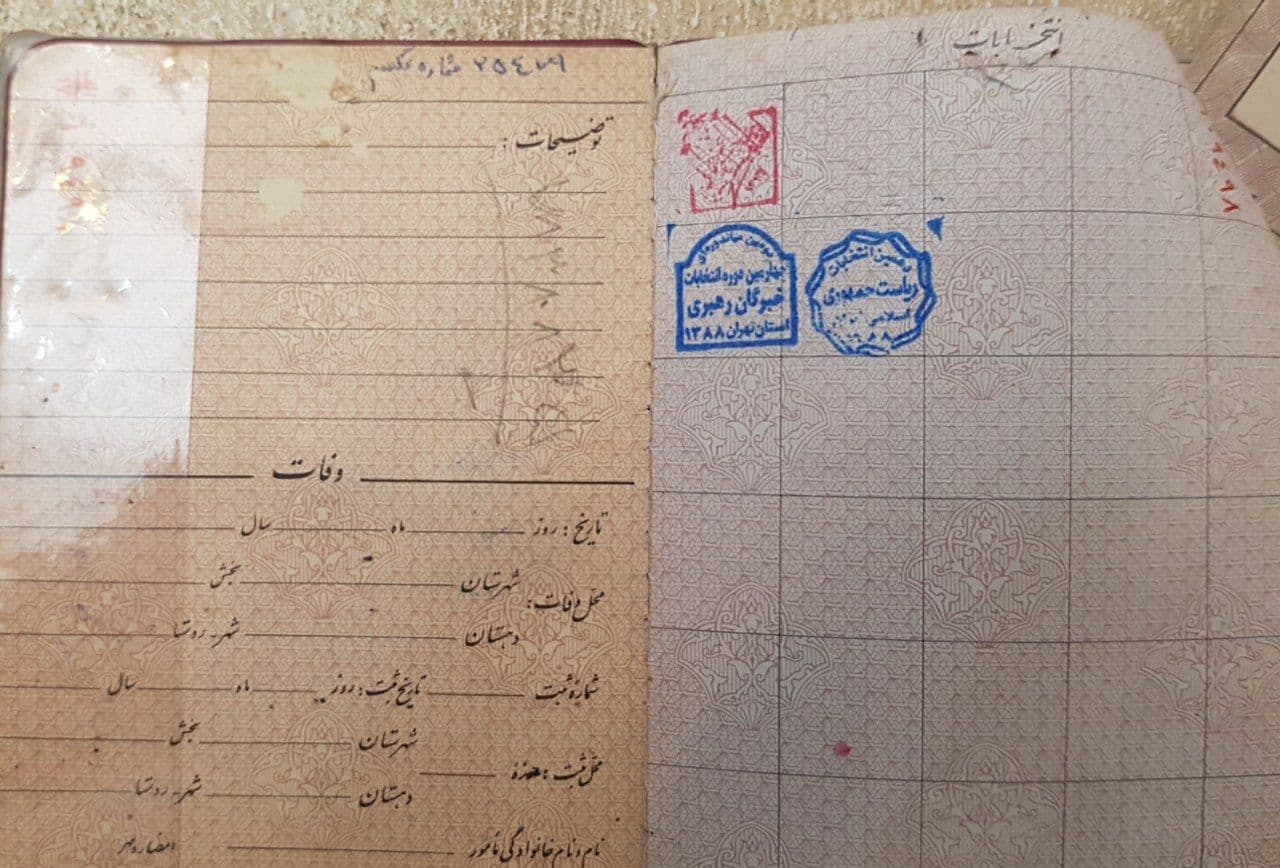 ۲۵۴۷۹ شماره عکس
توضیحات :
وفات
تاریخ : روز ماه سال
محل وفات : شهرستان بخش
دهستان شهر - روستا
شماره ثبت تاریخ ثبت : روز ماه سال
محل ثبت : حوزه شهرستان بخش
دهستان شهر - روستا
نام و نام خانوادگی مأمور امضاء و مهر
انتخابات
سومین میاندوره‌ای
چهارمین دوره انتخابات
خبرگان رهبری
استان تهران ۱۳۸۸
دهمین انتخابات
ریاست جمهوری
اسلامی